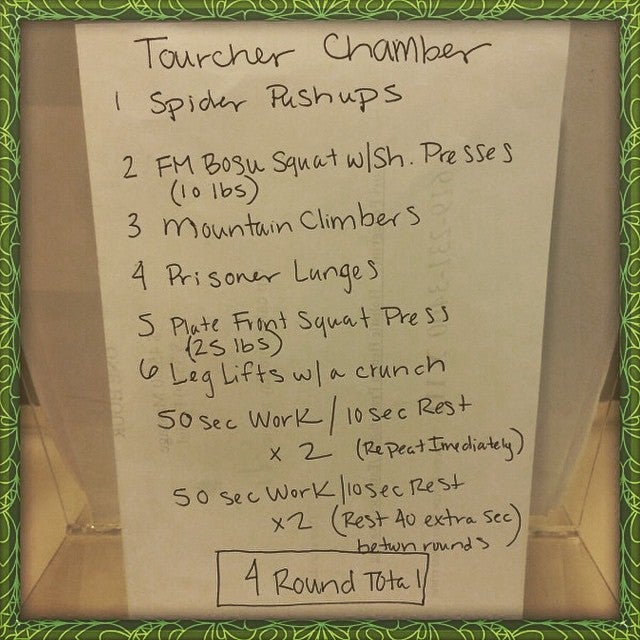 Tourcher Chamber
1 Spider Pushups
2 FM Bosu Squat w/sh. Presses
(10 lbs)
3 Mountain Climbers
4 Prisoner Lunges
5 Plate Front Squat Press
(25 lbs)
6 Leg Lifts w/a crunch
50 sec Work / 10 sec Rest
x 2 (Repeat Imediately)
50 sec Work/10sec Rest
x2 (Rest 40 extra sec)
betwn rounds
4 Round Total